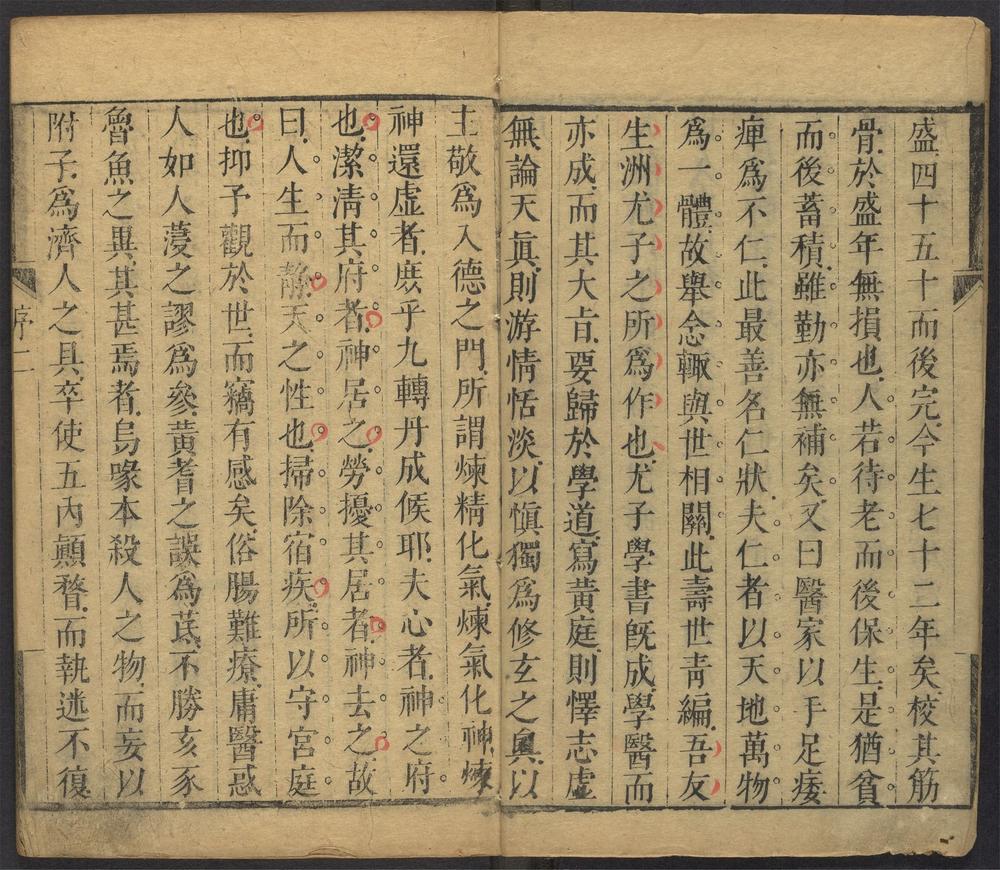 盛四十五十而後完今生七十二年矣校其筋
骨於盛年無損也人若待老而後保生是猶貧
而後蓄積雖勤亦無補矣又曰醫家以手足痿
痺爲不仁此最善名仁狀夫仁者以天地萬物
爲一體故舉念輒與世相關此壽世靑編吾友
生洲尤子之所爲作也尤子學書旣成學醫而
亦成而其大旨要歸於學道寫黃庭則懌志虛
無論天眞則游情恬淡以愼獨爲修玄之奧以
主敬爲入德之門所謂煉精化氣煉氣化神煉
神還虛者庶乎九轉丹成候耶夫心者神之府
也潔淸其府者神居之勞擾其居者神去之故
曰人生而靜天之性也掃除宿疾所以守宮庭
也抑予觀於世而竊有感矣俗腸難療庸醫惑
人如人蓡之謬爲參黃耆之誤爲茋不勝亥豕
魯魚之異其甚焉者烏喙本殺人之物而妄以
附子爲濟人之具卒使五內顚瞀而執迷不復
序二